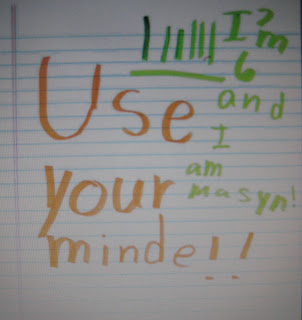 I?m
6
Use and
I
your am
masyn!
minde!!